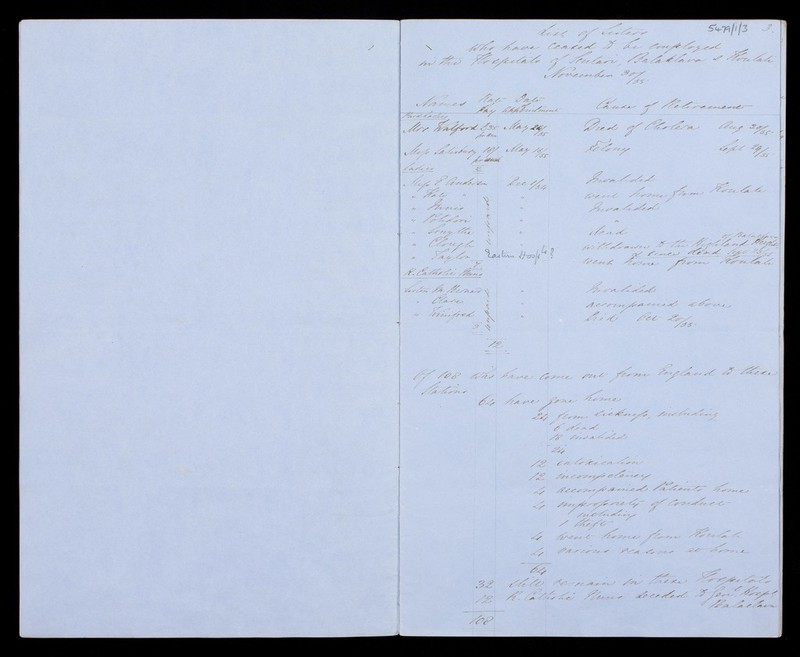 5479/1/3 3.
List of Sisters
who have ceased to be employed
in the Hospitals of Scutari, Balaklava & Koulali
November 30/55
Names Rate Pay Date Appointment Cause of Retirement
Mrs Walford May 24/55 Died of Cholera Aug 22/55
Miss Salisbury May 14/55 Felony Sept 29/55
Ladies
Miss E. Anderson Dec 1/54 Invalided
" Kate " " went home from Koulali
" Innis " Invalided
" Polidori " "
" Smythe " dead
" Clough " withdrawn to the Highland
" Taylor Eastern Hosp.ls? went home from Koulali
R. Catholic Nuns
Sister M. Bernard " Invalided
" Clare " accompanied above
" Winifred " Died Oct 20/55
3
12
Of 108 who have come out from England to these
Stations
64 have gone home
24 from sickness, including
6 dead
18 invalided
24
12 intoxication
12 incompetency
4 accompanied Patients home
4 impropriety of conduct
including
1 theft
4 went home from Koulali
4 various reasons
64
32 still remain in these Hospitals
12 R. Catholic Nuns seceded to Gen.l Hosp.l
Balaclava
108